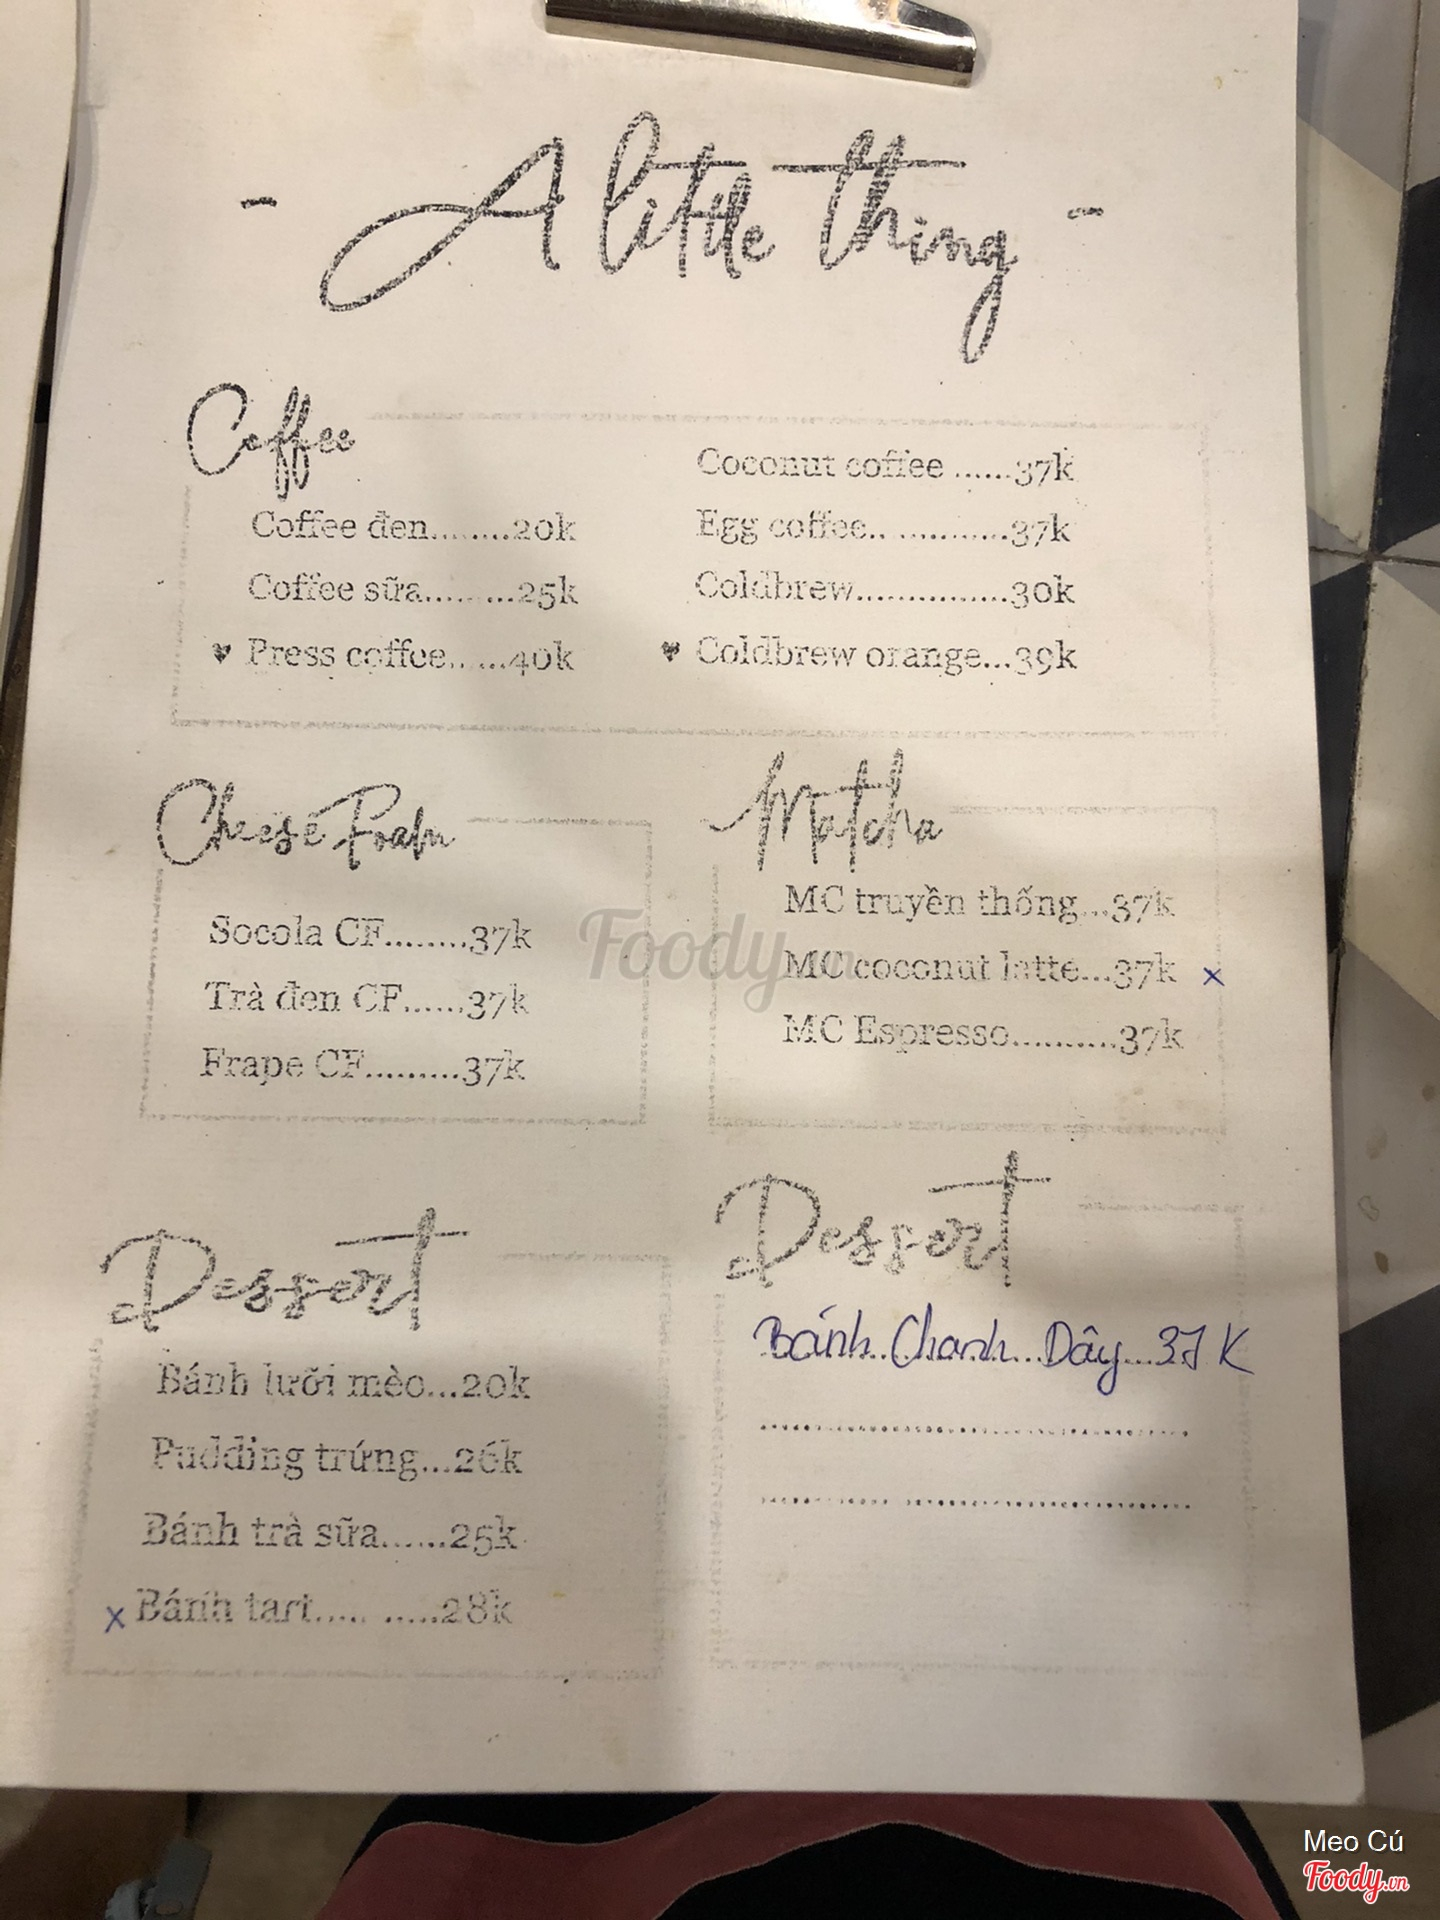 - A little thing -
Coffee
Coffee đen........20k
Coffee sữa.........25k
♥ Press coffee.. ....40k
Coconut coffee ......37k
Egg coffee.. ............37k
Coldbrew...............30k
♥ Coldbrew orange...39k
Cheese Foam
Socola CF........37k
Trà đen CF......37k
Frape CF.........37k
Matcha
MC truyền thống...37k
MC coconut latte...37k x
MC Espresso..........37k
Foody.vn
Dessert
Bánh lưỡi mèo...20k
Pudding trứng...26k
Bánh trà sữa......25k
x Bánh tart..... .....28k
Dessert
Bánh Chanh Dây 37K
Meo Cú
Foody.vn